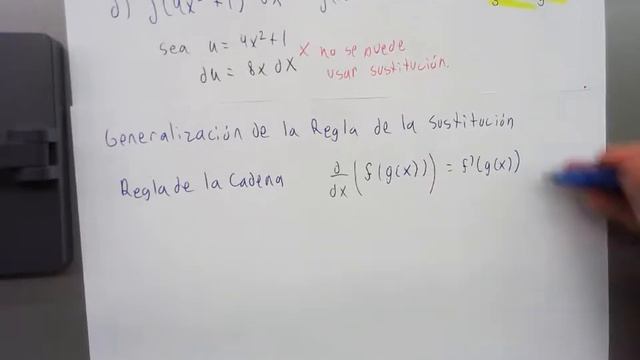 sea u = 4x²+1
x no se puede
du = 8x dx
usar sustitución.
Generalización de la Regla de la Sustitución
Regla de la Cadena d/dx (f(g(x))) = f'(g(x))